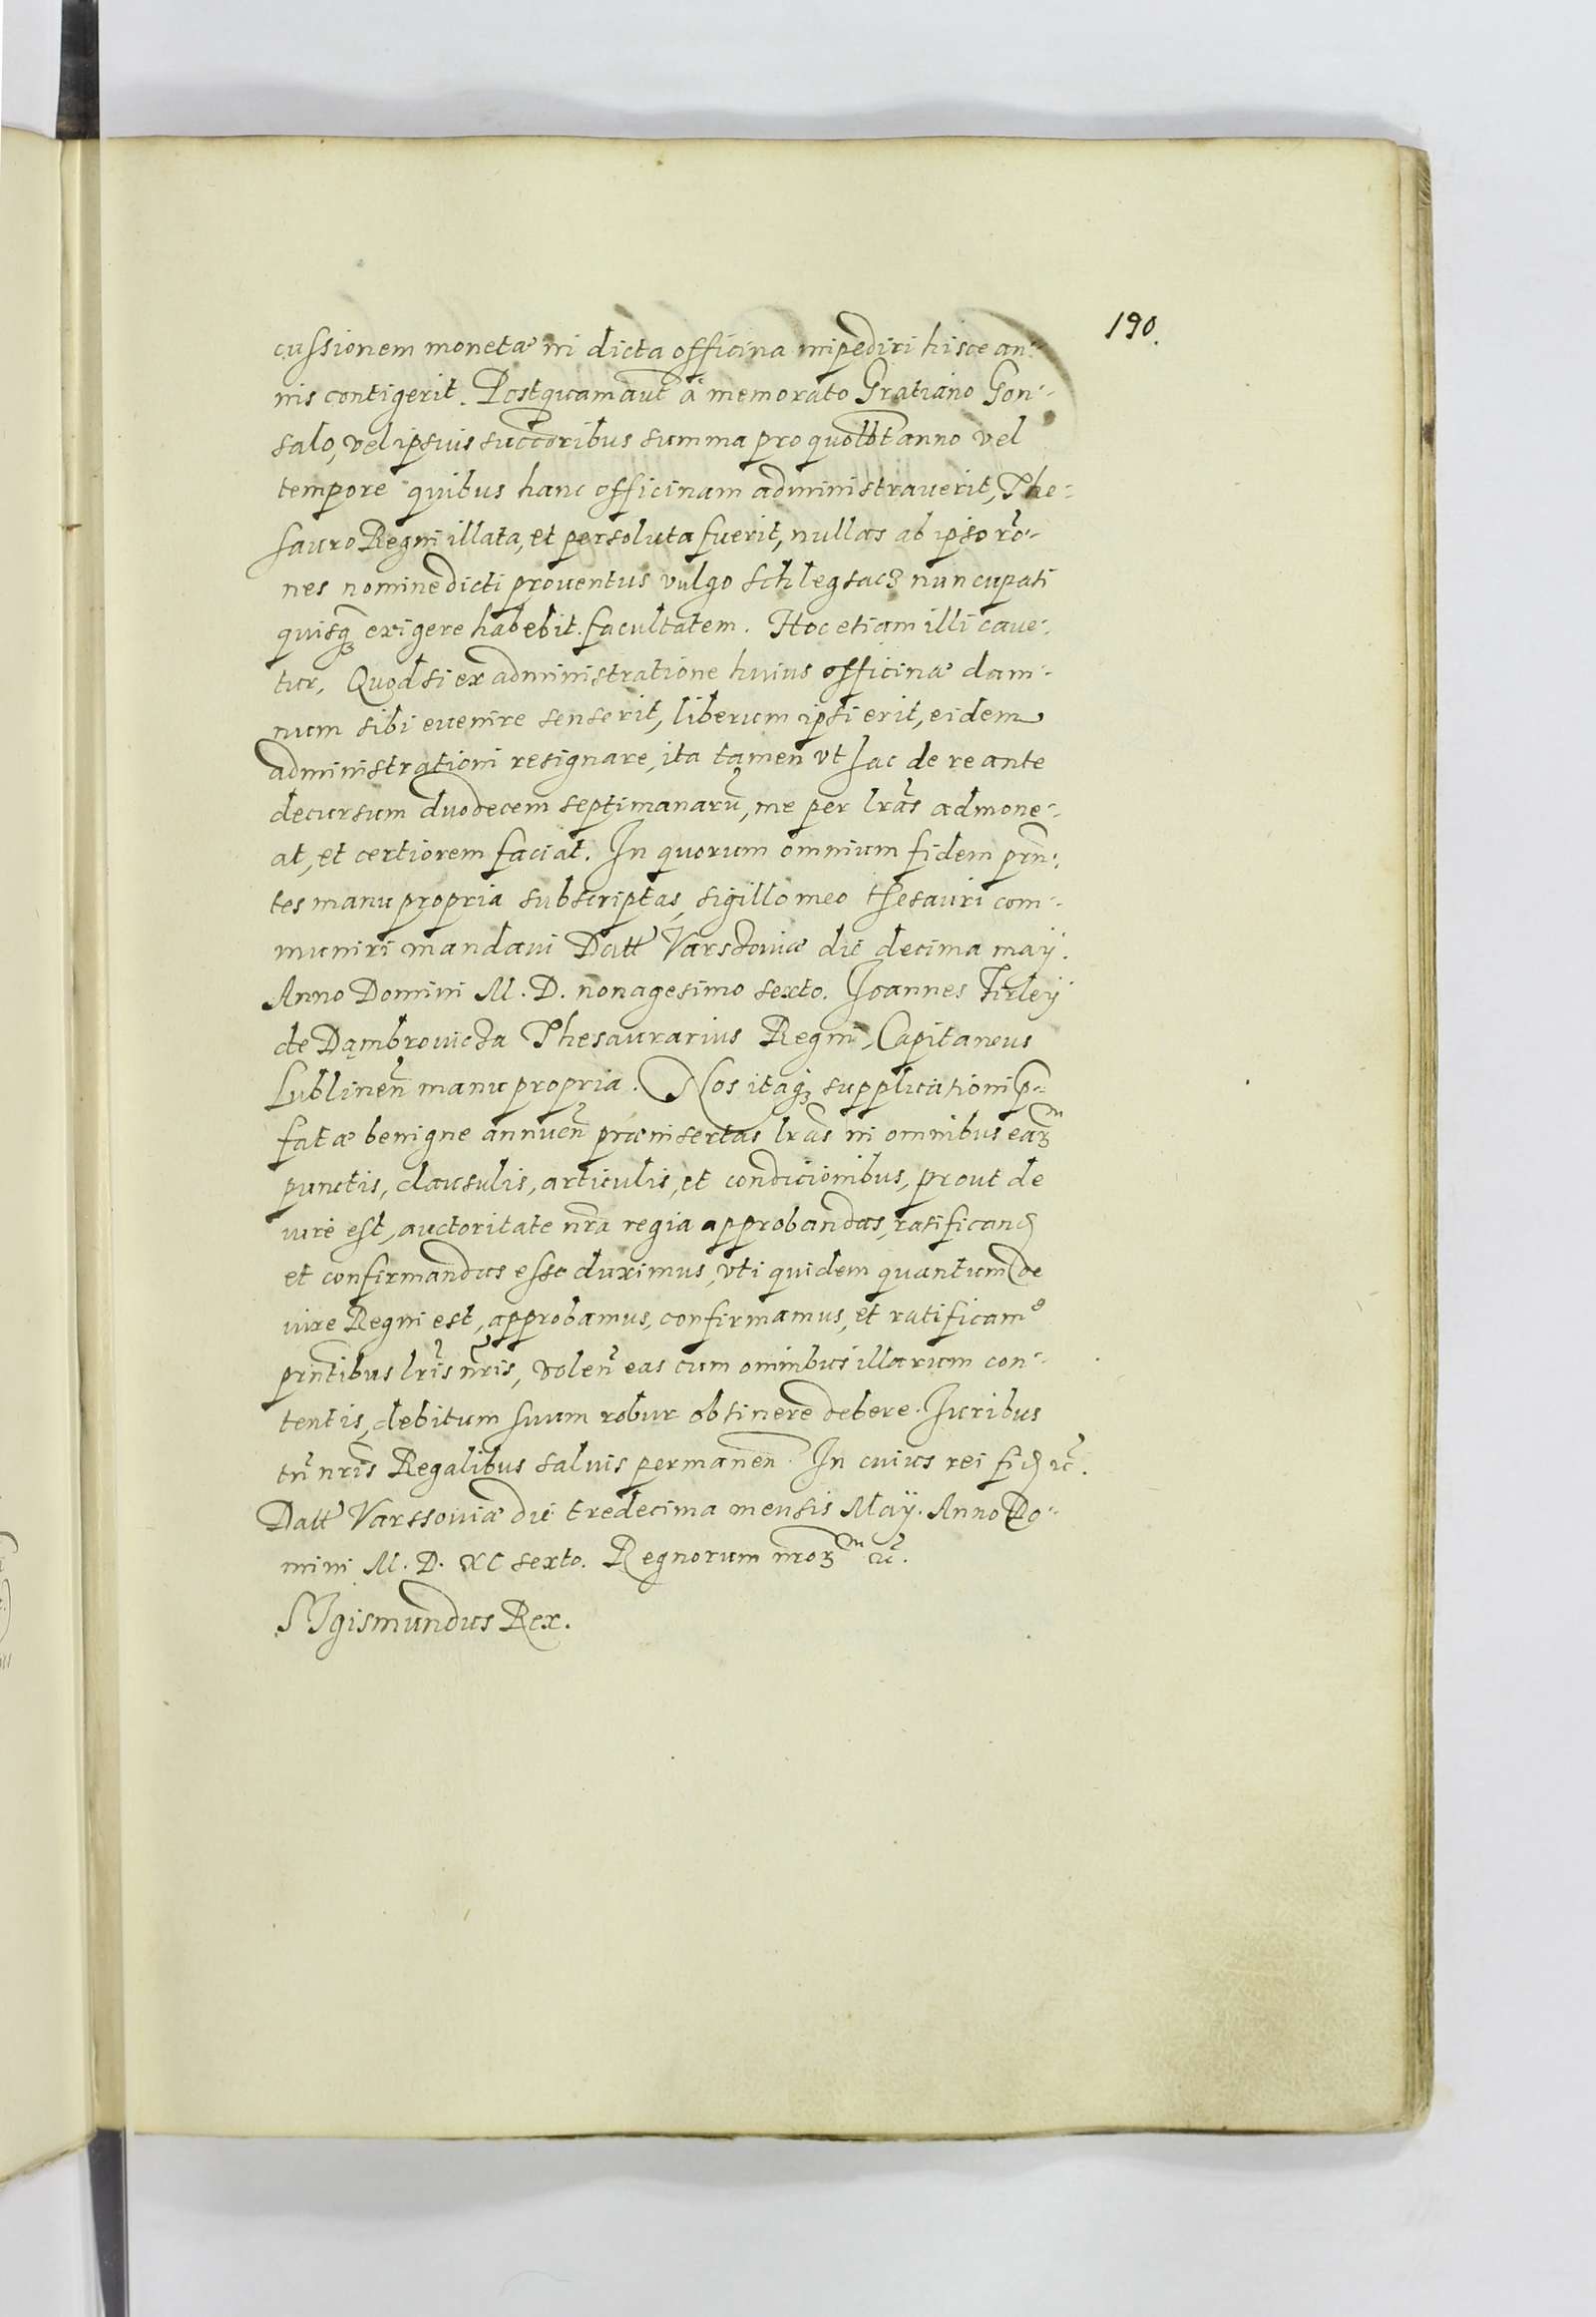 190.
cussionem monetæ in dicta officina impediri hisce an-
nis contigerit. Postquam aut à memorato Gratiano Gon-
salo, vel ipsius succoribus summa pro quolbt anno vel
tempore quibus hanc officinam administrauerit, The-
sauro Regni illata, et persoluta fuerit, nullas ab ipso ro-
nes nomine dicti prouentus vulgo Schlegsacz nuncupati
quisq exigere habebit facultatem. Hoc etiam illi caue-
tur, Quod si ex administratione huius officinæ dam-
num sibi euenire senserit, liberum ipsi erit, eidem
administrationi resignare, ita tamen vt hac de re ante
decursum duodecem septimanarū, me per lras admone-
at, et certiorem faciat. In quorum omnium fidem prn-
tes manu propria subscriptas, sigillo meo thesauri com-
muniri mandaui Datt Varschouiæ die decima maÿ.
Anno Domini M. D. nonagesimo sexto. Joannes Firleÿ
de Dąmbrouicza Thesaurarius Regni, Capitaneus
Lublinen manu propria. Nos itaq supplicationi p-
fatæ benigne annuen præinsertas lras in omnibus earm
punctis, clausulis, articulis, et condicionibus, prout de
iure est, auctoritate nra regia approbandas, ratificand
et confirmandas esse duximus, vti quidem quantum de
iure Regni est, approbamus, confirmamus, et ratificam9
prntibus lris nris, volen eas cum omnibus illarum con-
tentis, debitum suum robur obtinere debere. Juribus
tn nris Regalibus saluis permanen. In cuius rei fid &c.
Datt Varssouiæ die tredecima mensis Maÿ. Anno Do-
mini M. D. XC sexto. Regnorum nrorm &c.
SIgismundus Rex.